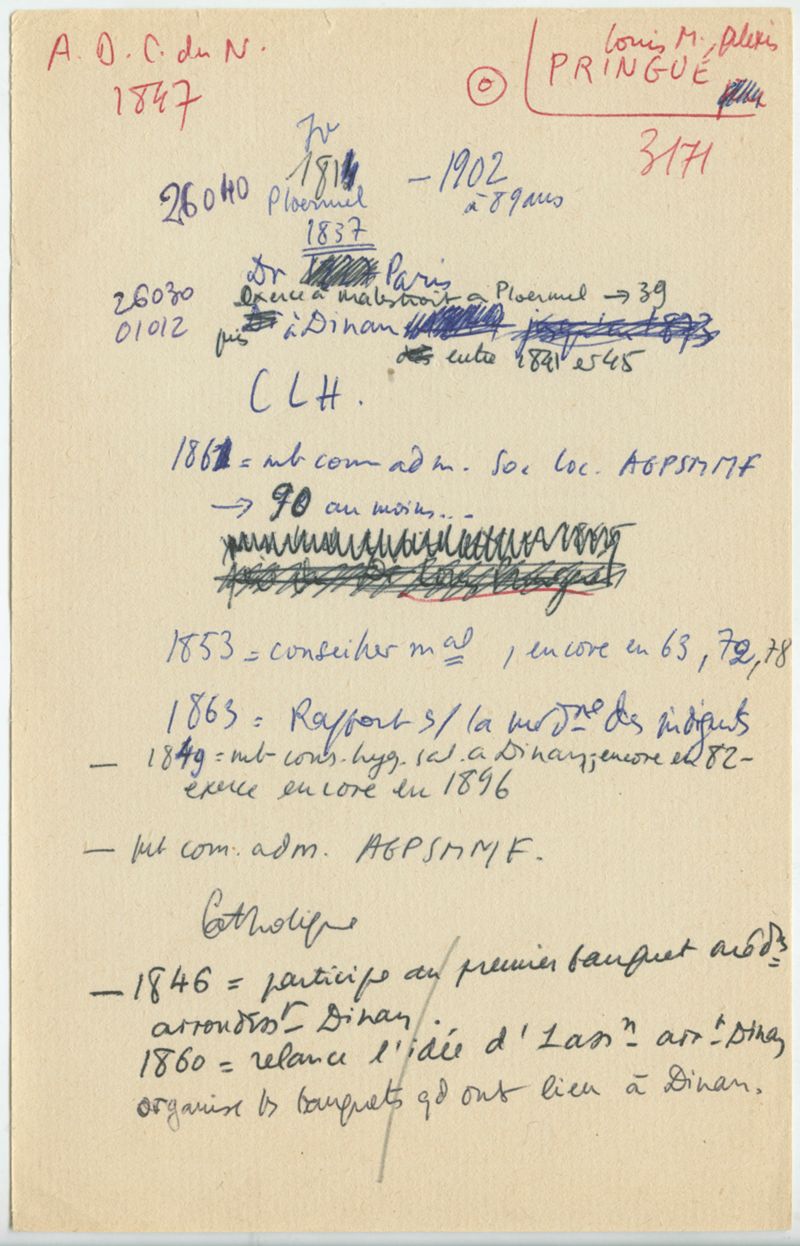 A. D. C. du N.
1847
Louis M., Alexis
PRINGUÉ
3171
26040
181
— 1902
Ploermel
à 89 ans
1837
Dr Paris
26030
exerce à malestroit à Ploermel → 39
01012
puis à Dinan
entre 1841 et 45
CLH.
1861 = mb com adm. Soc loc. AGPSMMF
→ 90 au moins...
1853 = conseiller mal, encore en 63, 72, 78
1863 = Rapport s/ la médne des indigents
— 1849 = mb cons. hyg. sal. a Dinan, encore en 82 -
exerce encore en 1896
— mb com. adm. AGPSMMF.
Catholique
— 1846 = participe au premier banquet méd
arrondisst Dinan.
1860 = relance l'idée d'1 assn arrt Dinan
organise ls banquets qd ont lieu à Dinan.